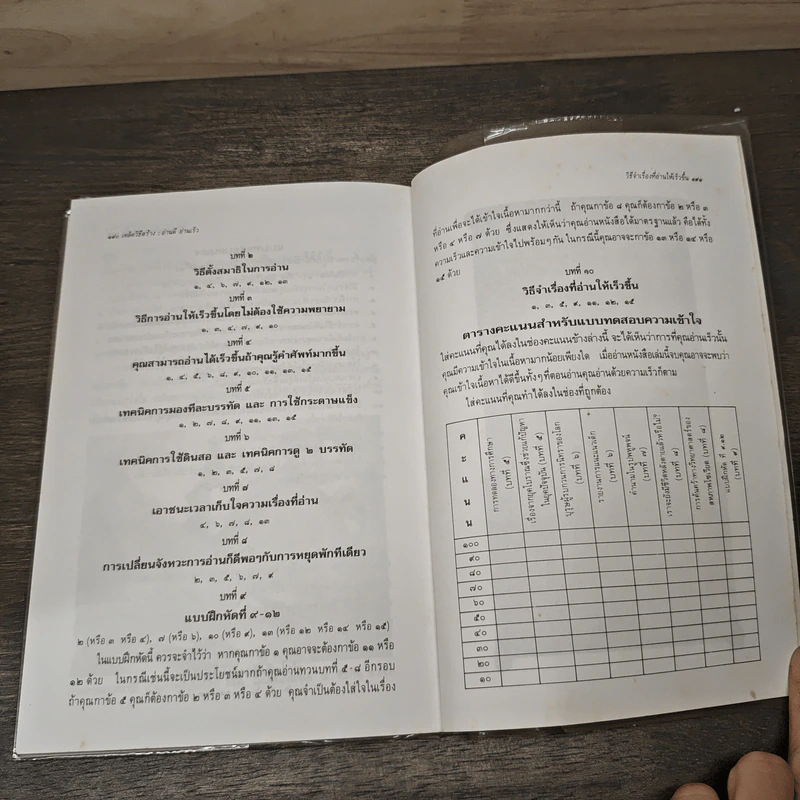 ๑๘๐ เคล็ดวิธีสร้าง : อ่านดี อ่านเร็ว
บทที่ ๒
วิธีตั้งสมาธิในการอ่าน
๑, ๔, ๖, ๗, ๙, ๑๒, ๑๓
บทที่ ๓
วิธีการอ่านให้เร็วขึ้นโดยไม่ต้องใช้ความพยายาม
๑, ๓, ๔, ๗, ๙, ๑๐
บทที่ ๔
คุณสามารถอ่านได้เร็วขึ้นถ้าคุณรู้คำศัพท์มากขึ้น
๑, ๔, ๕, ๖, ๘, ๙, ๑๐, ๑๑, ๑๓, ๑๕
บทที่ ๕
เทคนิคการมองทีละบรรทัด และ การใช้กระดาษแข็ง
๑, ๒, ๗, ๘, ๙, ๑๑, ๑๓, ๑๕
บทที่ ๖
เทคนิคการใช้ดินสอ และ เทคนิคการดู ๒ บรรทัด
๑, ๒, ๓, ๕, ๗, ๘
บทที่ ๗
เอาชนะเวลาเก็บใจความเรื่องที่อ่าน
๔, ๖, ๗, ๘, ๑๓
บทที่ ๘
การเปลี่ยนจังหวะการอ่านก็ดีพอๆกับการหยุดพักทีเดียว
๒, ๓, ๕, ๖, ๗, ๙
บทที่ ๙
แบบฝึกหัดที่ ๙-๑๒
๒ (หรือ ๓ หรือ ๔), ๗ (หรือ ๖), ๑๐ (หรือ ๙), ๑๓ (หรือ ๑๒ หรือ ๑๔ หรือ ๑๕)
ในแบบฝึกหัดนี้ ควรจะจำไว้ว่า หากคุณกาข้อ ๑ คุณอาจจะต้องกาข้อ ๑๑ หรือ
๑๒ ด้วย ในกรณีเช่นนี้จะเป็นประโยชน์มากถ้าคุณอ่านทวนบทที่ ๕-๘ อีกรอบ
ถ้าคุณกาข้อ ๕ คุณก็ต้องกาข้อ ๒ หรือ ๓ หรือ ๔ ด้วย คุณจำเป็นต้องใส่ใจในเรื่อง
วิธีจำเรื่องที่อ่านให้เร็วขึ้น ๑๘๑
ที่อ่านเพื่อจะได้เข้าใจเนื้อหามากกว่านี้ ถ้าคุณกาข้อ ๘ คุณก็ต้องกาข้อ ๒ หรือ ๓
หรือ ๔ หรือ ๗ ด้วย ซึ่งแสดงให้เห็นว่าคุณอ่านหนังสือได้มาตรฐานแล้ว คือได้ทั้ง
ความเร็วและความเข้าใจไปพร้อมๆกัน ในกรณีนี้คุณอาจจะกาข้อ ๑๓ หรือ ๑๔ หรือ
๑๕ ด้วย
บทที่ ๑๐
วิธีจำเรื่องที่อ่านให้เร็วขึ้น
๑, ๓, ๕, ๙, ๑๑, ๑๒, ๑๕
ตารางคะแนนสำหรับแบบทดสอบความเข้าใจ
ใส่คะแนนที่คุณได้ลงในช่องคะแนนข้างล่างนี้ จะได้เห็นว่าการที่คุณอ่านเร็วนั้น
คุณมีความเข้าใจในเนื้อหามากน้อยเพียงใด เมื่ออ่านหนังสือเล่มนี้จบคุณอาจจะพบว่า
คุณเข้าใจเนื้อหาได้ดีขึ้นทั้งๆที่ตอนอ่านคุณอ่านด้วยความเร็วก็ตาม
ใส่คะแนนที่คุณทำได้ลงในช่องที่ถูกต้อง
คะแนน
การทดลองทางการศึกษา
(บทที่ ๕)
เรื่องจากยุคโบราณซึ่งช่วยแก้ปัญหา
ในยุคปัจจุบัน (บทที่ ๕)
บุรุษผู้รวบการบันเทิงของโลก
(บทที่ ๖)
รายงานการแนะแนวเด็ก
(บทที่ ๖)
(บทที่ ๗)
เราจะยังมีชีวิตหลังตายแล้วหรือไม่?
(บทที่ ๘)
การค้นคว้าทางวิทยาศาสตร์ของ
สหภาพโซเวียต (บทที่ ๘)
แบบฝึกหัด ที่ ๙-๑๒
(บทที่ ๙)
๑๐๐
๙๐
๘๐
๗๐
๖๐
๕๐
๔๐
๓๐
๒๐
๑๐